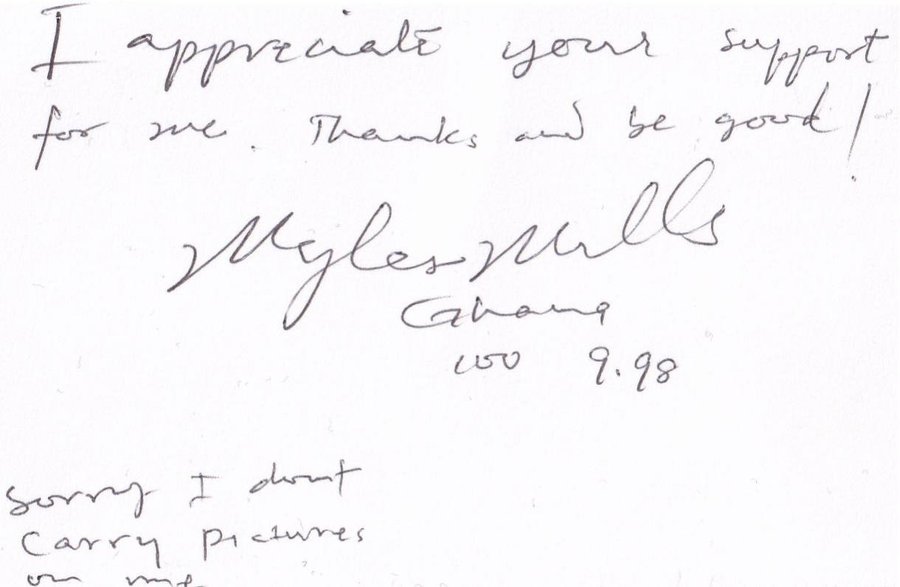 I appreciate your support
for me. Thanks and be good!
Myles Mills
Ghana
100 9.98
Sorry I dont
Carry pictures
on me